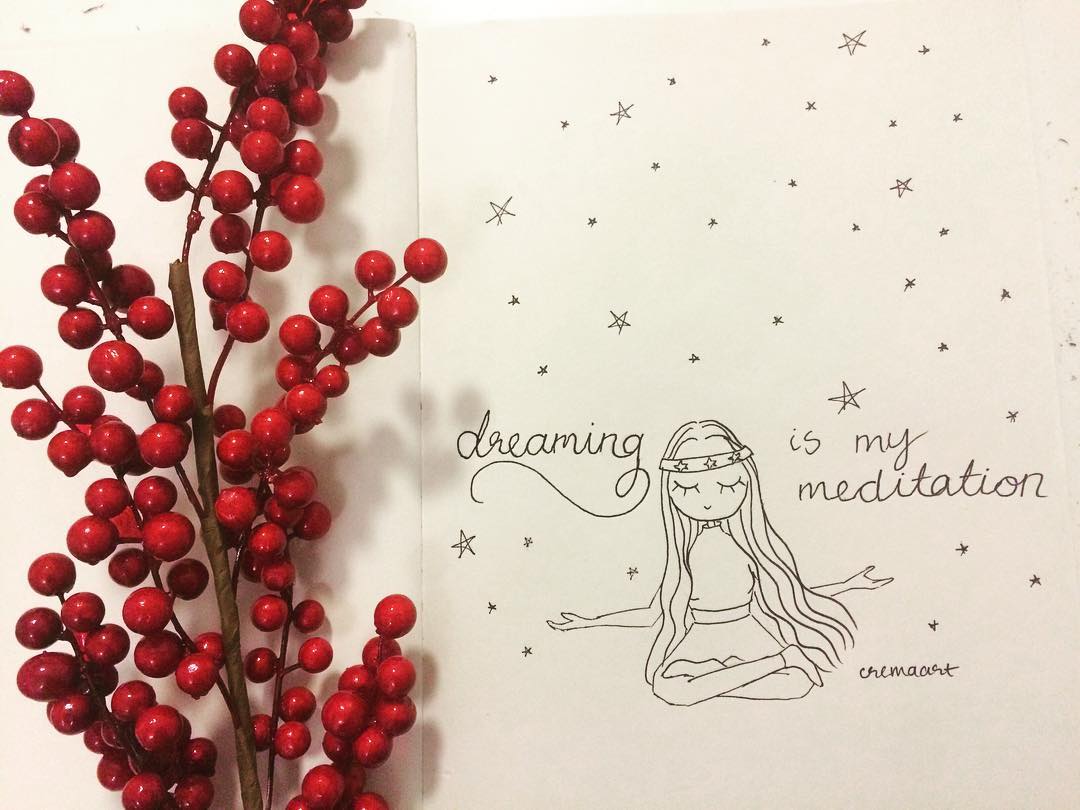 dreaming
is my
meditation
cremaart